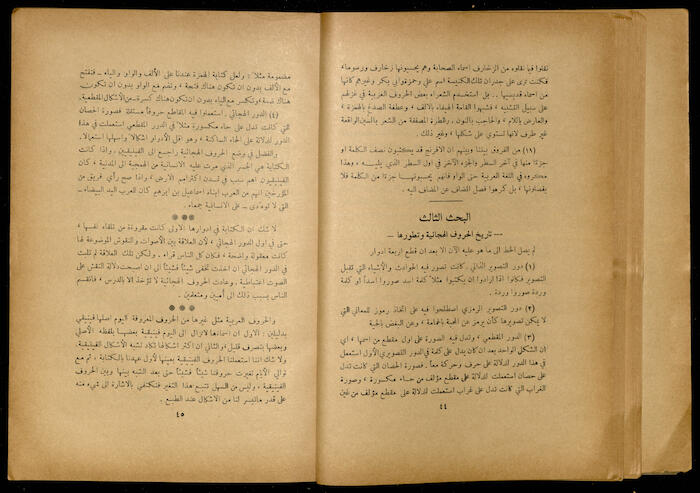 نقلوا فيما نقلوه من الزخارف اسماء الصحابة وهم يحسبونها زخارف ورسوما،
فكنت ترى على جدران تلك الكنيسة اسم علي وحمزة وابي بكر وغيرهم كأنها
من اسماء قديسيها. بل استخدم الشعراء بعض الحروف العربية في غزلهم
على سبيل التشبيه، فشبهوا القامة الهيفاء بالالف، وعطفة الصدغ بالهمزة،
والعارض باللام، والحاجب بالنون، والطرة المصففة من الشعر بالسين الواقعة
غير طرف لانها تستوي على شكلها، وغير ذلك.
(١٨) من الفروق بيننا وبينهم ان الافرنج قد يكتبون نصف الكلمة او
جزءًا منها في آخر السطر والجزء الآخر في اول السطر الذي يليه، وهذا
مكروه في اللغة العربية حتى الواو فانهم يحسبونها جزءًا من الكلمة فلا
يفصلونها، بل كرهوا فصل المضاف عن المضاف اليه.
البحث الثالث
— تاريخ الحروف الهجائية وتطورها —
لم يصل الخط الى ما هو عليه الآن الا بعد ان قطع اربعة ادوار
(١) دور التصوير الذاتي. كانت تصور فيه الحوادث والأشياء التي تقبل
التصوير فكانوا اذا ارادوا ان يكتبوا مثلاً كلمة اسد صوروا أسداً أو كلمة
وردة صوروا وردة.
(٢) دور التصوير الرمزي اصطلحوا فيه على اتخاذ رموز للمعاني التي
لا يمكن تصويرها كأن يرمز عن المحبة بالحمامة، وعن البغض بالحية
(٣) الدور المقطعي، وتدل فيه الصورة على اول مقطع من اسمها، اي
ان الشكل الواحد بعد ان كان يدل على كلمة في الدور التصويري الأول استعمل
في هذا الدور للدلالة على حرف وحركة معاً. فصورة الحصان التي كانت تدل
على حصان استعملت للدلالة على مقطع مؤلف من حاء مكسورة، وصورة
الغراب التي كانت تدل على غراب استعملت للدلالة على مقطع مؤلف من غين
٤٤
مضمومة مثلاً؛ ولعل كتابة الهمزة عندنا على الألف والواو والياء — فتفتح
مع الألف بدون ان تكون هناك فتحة، وتضم مع الواو بدون ان تكون
هناك ضمة، وتكسر مع الياء بدون ان تكون هناك كسرة — من الأشكال المقطعية.
(٤) الدور الهجائي. استعملوا فيه المقاطع حروفاً مستقلة فصورة الحصان
التي كانت تدل على حاء مكسورة مثلاً في الدور المقطعي استعملت في هذا
الدور للدلالة على الحاء الساكنة، وهو اقل الأدوار اشكالاً واسهلها استعمالاً.
والفضل في وضع الحروف الهجائية راجع الى الفينيقيين. واذا كانت
الكتابة هي الجسر الذي مرت عليه الانسانية من الهمجية الى المدنية، كان
الفينيقيون اهم سبب في تمدن اكثر امم الارض، واذا صح رأي فريق من
المؤرخين انهم من العرب ابناء اسماعيل بن ابرهيم كان للعرب اليد البيضاء —
التي لا تؤدى — على الانسانية جمعاء.
***
لا شك ان الكتابة في ادوارها الاولى كانت مقروءة من تلقاء نفسها،
حتى في اول الدور الهجائي، لأن العلاقة بين الأصوات والنقوش الموضوعة لها
كانت معقولة واضحة، فكان كل الناس قراء. ولكن تلك العلاقة لم تلبث
في الدور الهجائي ان اخذت تخفى شيئاً فشيئاً الى ان اصبحت دلالة النقش على
الصوت اعتباطية. وعادت الحروف الهجائية لا تؤخذ الا بالدرس، فانقسم
الناس بسبب ذلك الى أميين ومتعلمين.
***
والحروف العربية مثل غيرها من الحروف المعروفة اليوم اصلها فينيقي
بدليلين؛ الاول ان اسماءها لا تزال الى اليوم فينيقية بعضها بلفظه الأصلي
وبعضها بتصرف قليل، والثاني ان اكثر اشكالها تكاد تشبه الأشكال الفينيقية.
ولا شك اننا استعملنا الحروف الفينيقية بعينها لأول عهدنا بالكتابة، ثم مع
توالي الأيام تغيرت حروفنا شيئاً فشيئاً حتى بعد الشبه بينها وبين الحروف
الفينيقية، وليس من السهل تتبع هذا التغير فنكتفي بالاشارة الى شيء منه
على قدر ما تيسر لنا من الاشكال عند الطبع.
٤٥